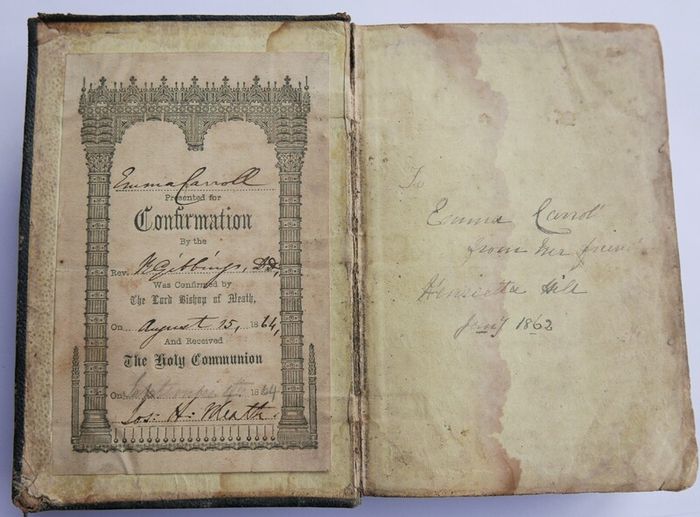 Emma Carroll
Presented for
Confirmation
By the
Rev. R Gibbings, D.D.,
Was Confirmed by
The Lord Bishop of Meath,
On August 25, 1864,
And Received
The Holy Communion
On September 4th 1864
Jos: H: Meath.
To
Emma Carrol
from her friend
Henrietta Hill
Jan'y 1862